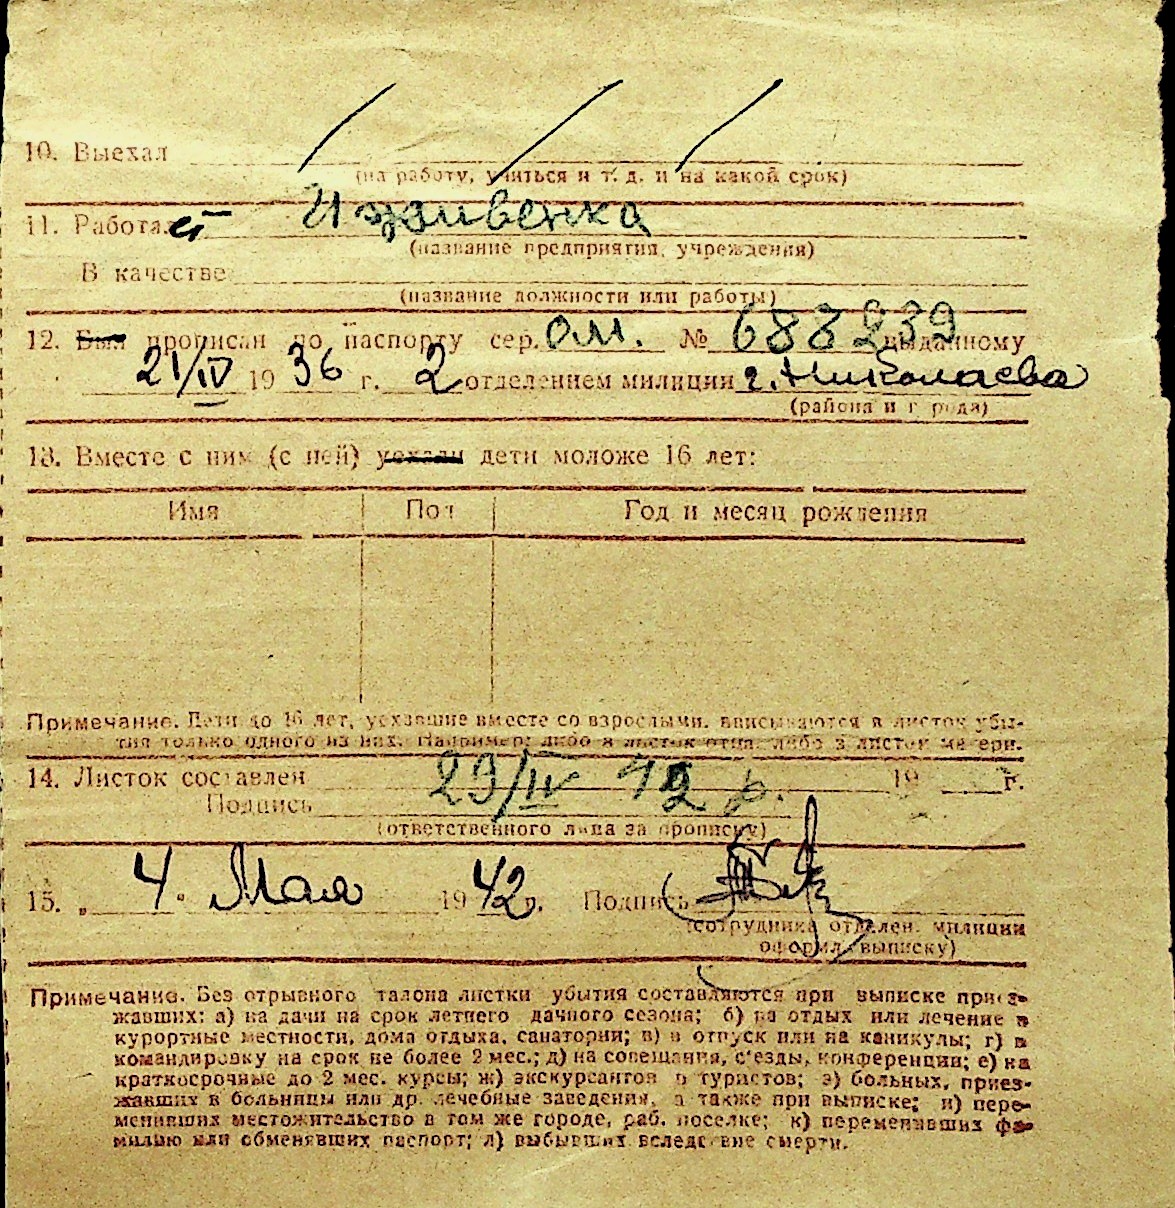 10. Выехал
(на работу, учиться и т. д. и на какой срок)
11. Работает Иждивенка
(название предприятия, учреждения)
В качестве
(название должности или работы)
12. Был прописан по паспорту сер. ОМ. № 688239 выданному
21/IV 1936 г. 2 отделением милиции г. Николаева
(района и города)
13. Вместе с ним (с ней) уехали дети моложе 16 лет:
Имя Пол Год и месяц рождения
Примечание. Дети до 16 лет, уехавшие вместе со взрослыми, вписываются в листок убы-
тия только одного из них. Например: либо в листок отца, либо в листок матери.
14. Листок составлен 29/IV 42 р. 19 г.
Подпись
(ответственного лица за прописку)
15. „4“ Мая 1942 г. Подпись
(сотрудника отделен. милиции
оформл. выписку)
Примечание. Без отрывного талона листки убытия составляются при выписке приез-
жавших: а) на дачи на срок летнего дачного сезона; б) на отдых или лечение в
курортные местности, дома отдыха, санатории; в) в отпуск или на каникулы; г) в
командировку на срок не более 2 мес.; д) на совещания, с'езды, конференции; е) на
краткосрочные до 2 мес. курсы; ж) экскурсантов и туристов; з) больных, приез-
жавших в больницы или др. лечебные заведения, а также при выписке; и) пере-
менивших местожительство в том же городе, раб. поселке; к) переменивших фа-
милию или обменявших паспорт; л) выбывших вследствие смерти.